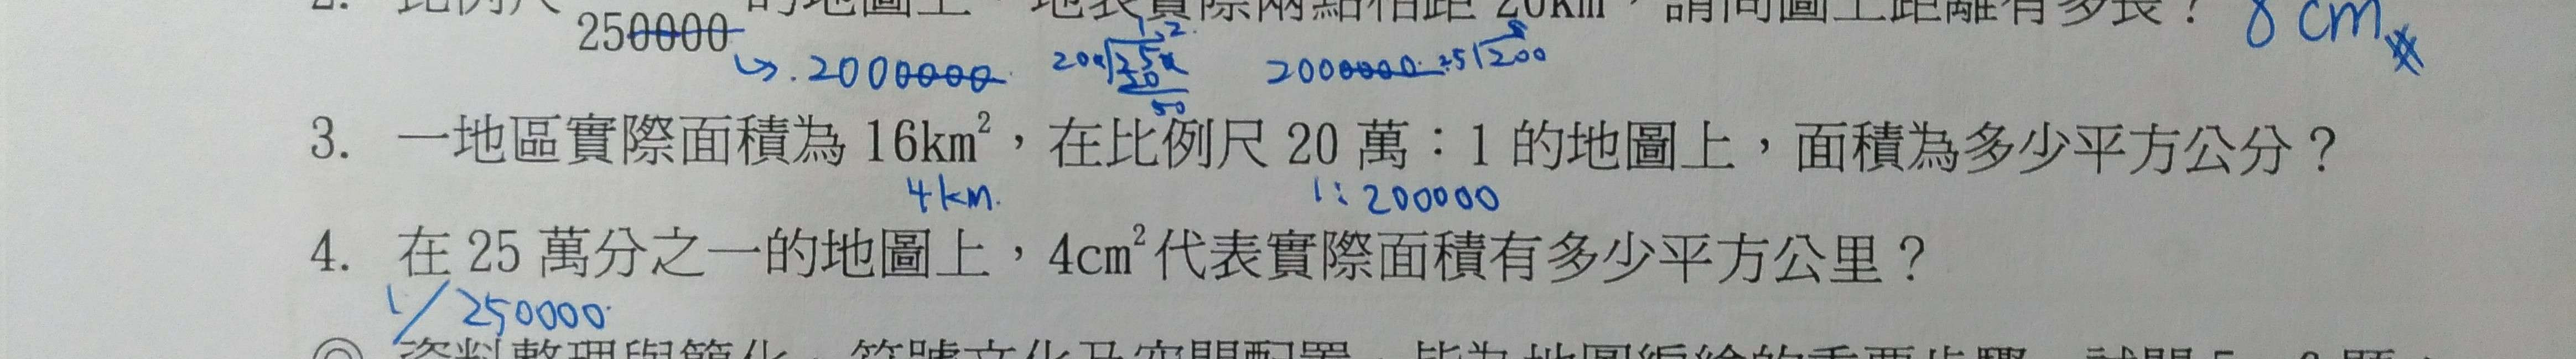 2. 比例尺 250000 的地圖上，地表實際兩點相距 20km，請問圖上距離有多長？ 8 cm
2000000 2000000
3. 一地區實際面積為 16km²，在比例尺 20 萬：1 的地圖上，面積為多少平方公分？
4km. 1:200000
4. 在 25 萬分之一的地圖上，4cm²代表實際面積有多少平方公里？
1/250000